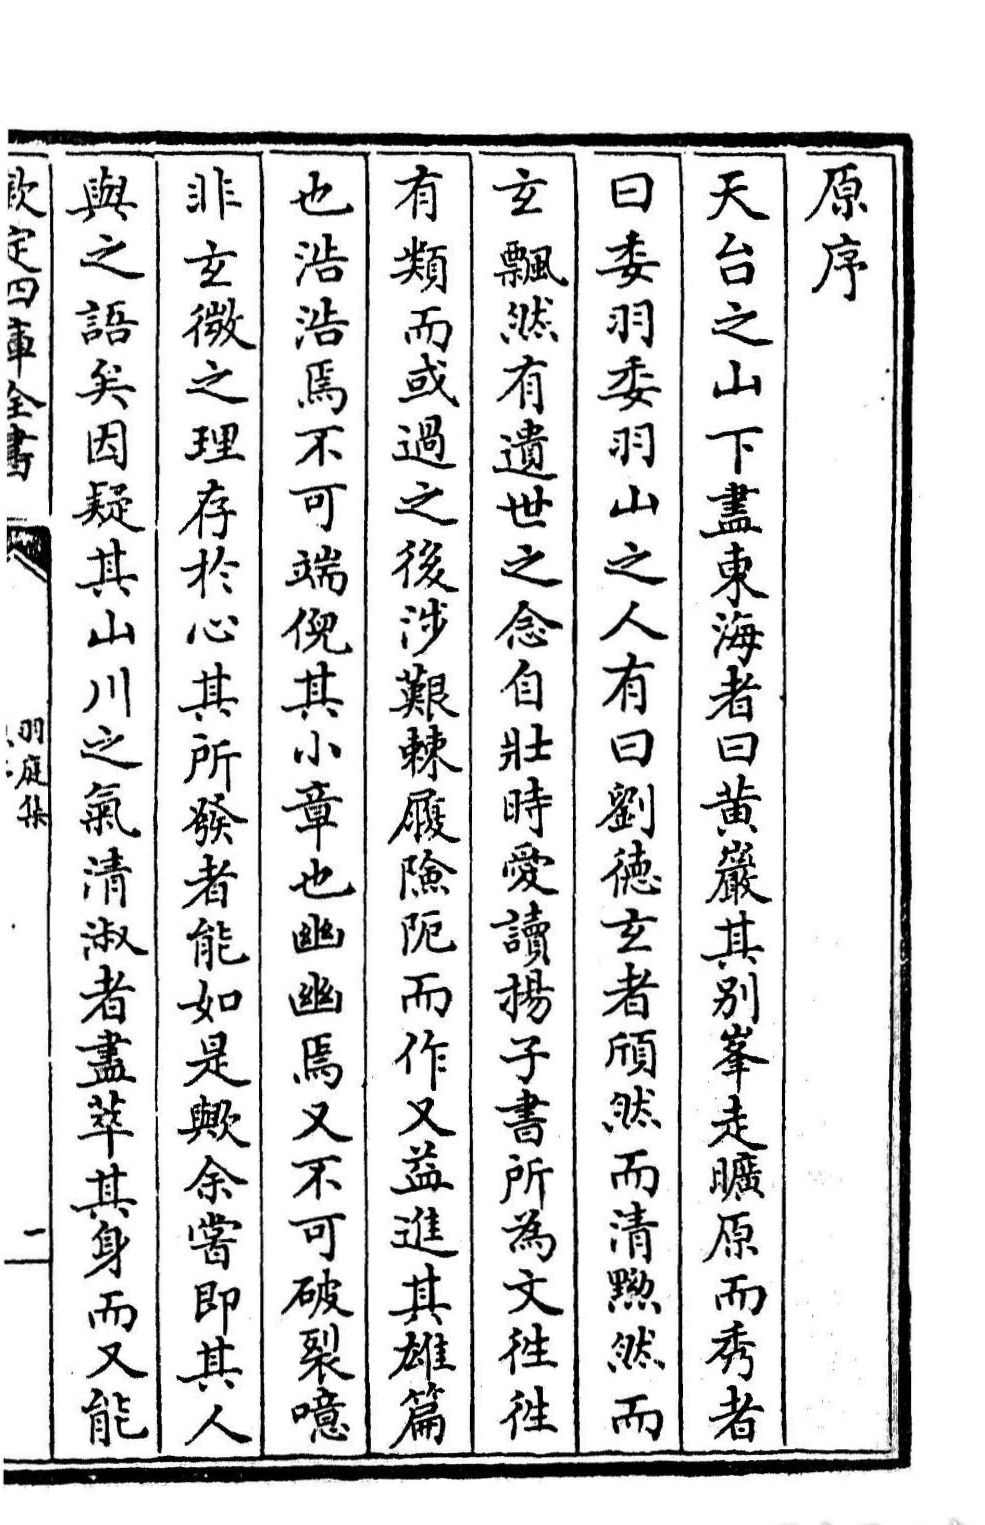 原序
天台之山下盡東海者曰黃巖其別峯走曠原而秀者
曰委羽委羽山之人有曰劉德玄者頎然而清黝然而
玄飄然有遺世之念自壯時愛讀揚子書所為文徃徃
有類而或過之後涉艱棘履險阨而作又益進其雄篇
也浩浩焉不可端倪其小章也幽幽焉又不可破裂噫
非玄微之理存於心其所發者能如是歟余嘗即其人
與之語矣因疑其山川之氣清淑者盡萃其身而又能
欽定四庫全書
羽庭集
一